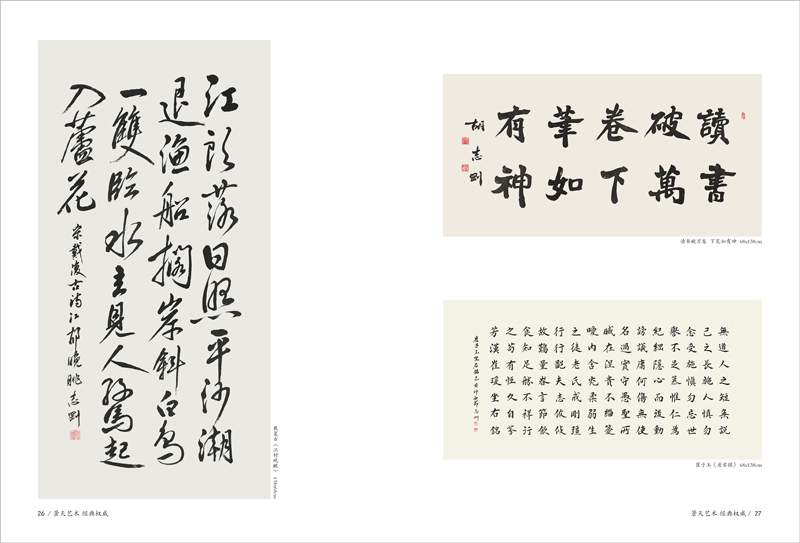 江頭落日照平沙潮
退漁船擱岸斜白鳥
一雙臨水立見人驚起
入蘆花
宋戴復古詩江邨晚眺志剛
戴复古《江村晚眺》 136x68cm
26 / 景天艺术 经典权威
讀書
破萬
卷下
筆如
有神
胡志剛
读书破万卷 下笔如有神 68x138cm
無道人之短無說
己之長施人慎勿
念受施慎勿忘世
譽不足慕惟仁為
紀綱隱心而後動
謗議庸何傷無使
名過實守愚聖所
臧在涅貴不緇曖
曖內含光柔弱生
之徒老氏戒剛強
行行鄙夫志悠悠
故難量慎言節飲
食知足勝不祥行
之苟有恒久自芬
芳漢崔瑗座右銘
崔子玉《座右铭》 68x138cm
景天艺术 经典权威 / 27